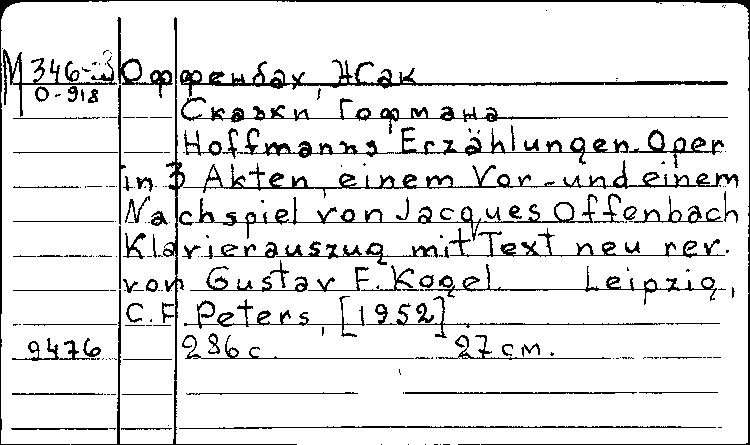 М 346-3 Оффенбах, Жак
О-918
Сказки Гофмана
Hoffmanns Erzählungen. Oper
in 3 Akten, einem Vor- und einem
Nachspiel von Jacques Offenbach
Klavierauszug mit Text neu rev.
von Gustav F. Kogel. Leipzig,
C. F. Peters, [1952].
9476 286 с. 27 см.